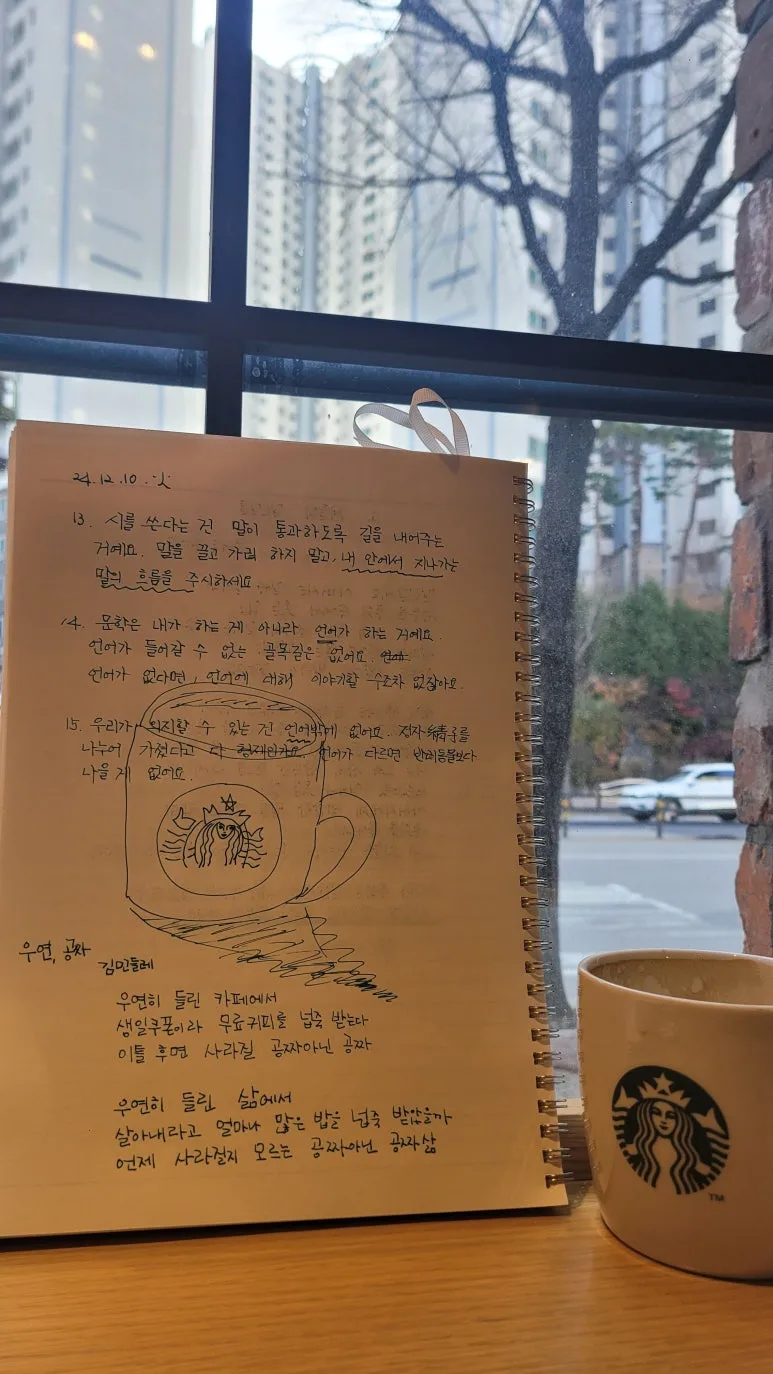 24.12.10.火
13. 시를 쓴다는 건 말이 통과하도록 길을 내어주는
거예요. 말을 끌고 가려 하지 말고, 내 안에서 지나가는
말의 흐름을 주시하세요
14. 문학은 내가 하는 게 아니라 언어가 하는 거예요.
언어가 들어갈 수 없는 골목길은 없어요.
언어가 없다면, 언어에 대해 이야기할 수조차 없잖아요.
15. 우리가 의지할 수 있는 건 언어밖에 없어요. 정자 精子를
나누어 가졌다고 다 형제인가요. 언어가 다르면 반려동물보다
나을 게 없어요.
우연, 공짜
김민들레
우연히 들린 카페에서
생일쿠폰이라 무료커피를 넙죽 받는다
이틀 후면 사라질 공짜아닌 공짜
우연히 들린 삶에서
살아내라고 얼마나 많은 밥을 넙죽 받았을까
언제 사라질지 모르는 공짜아닌 공짜삶
TM